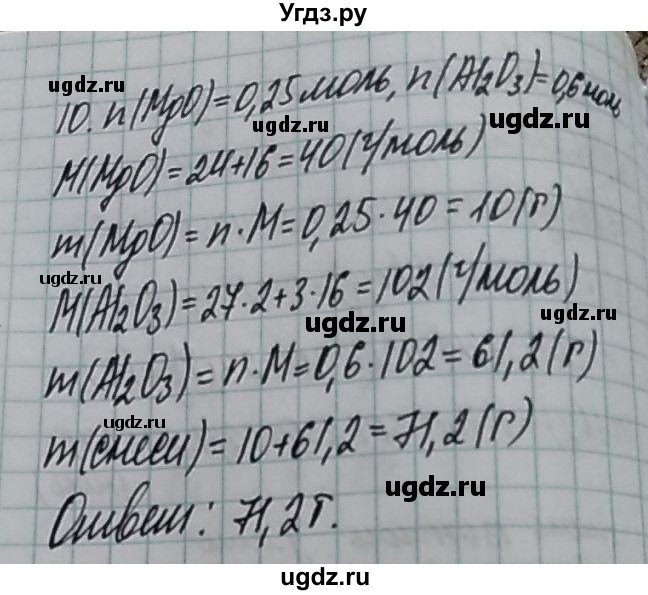 Угдз.ру
ugdz.ru
10. n(MgO)=0,25моль, n(Al₂O₃)=0,6моль
ugdz.ru
ugdz.ru
M(MgO)=24+16=40(г/моль)
m(MgO)=n·M=0,25·40=10(г)
ugdz.ru
M(Al₂O₃)=27·2+3·16=102(г/моль)
ugdz.ru
m(Al₂O₃)=n·M=0,6·102=61,2(г)
ugdz.ru
m(смеси)=10+61,2=71,2(г)
ugdz.ru
Ответ: 71,2г.
ugdz.ru